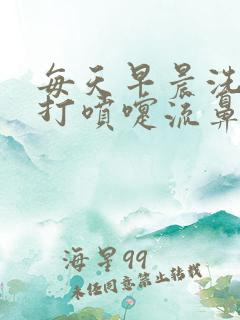 每天早晨洗
打噴嚏流鼻
海星99
未经同意禁止转载